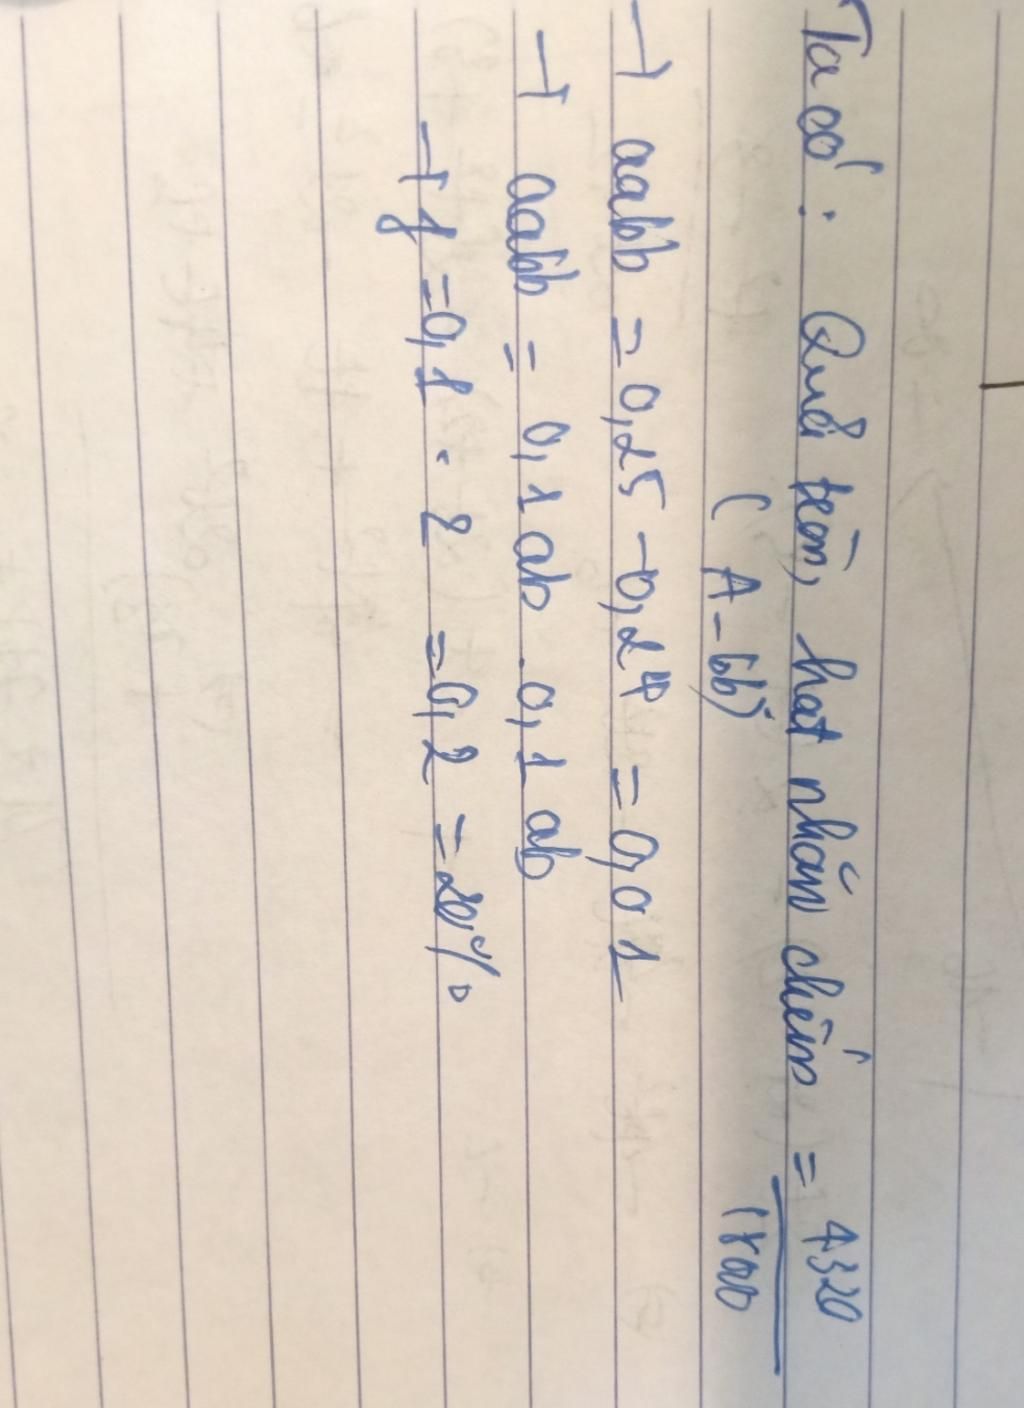 Ta có: Quả tròn, hạt nhăn chiếm = 4320
(A-bb) 18000
→ aabb = 0,25 - 0,24 = 0,01
→ aabb = 0,1 ab . 0,1 ab
→ f = 0,1 . 2 = 0,2 = 20%